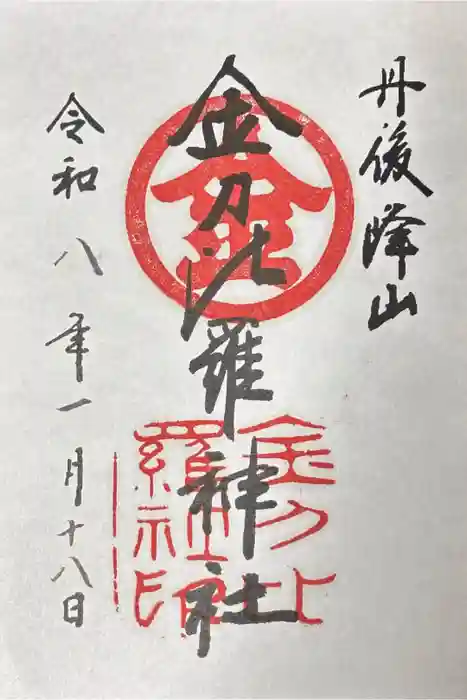 丹後峰山
金刀比羅神社
令和八年一月十八日
金
金刀比
羅神社
印